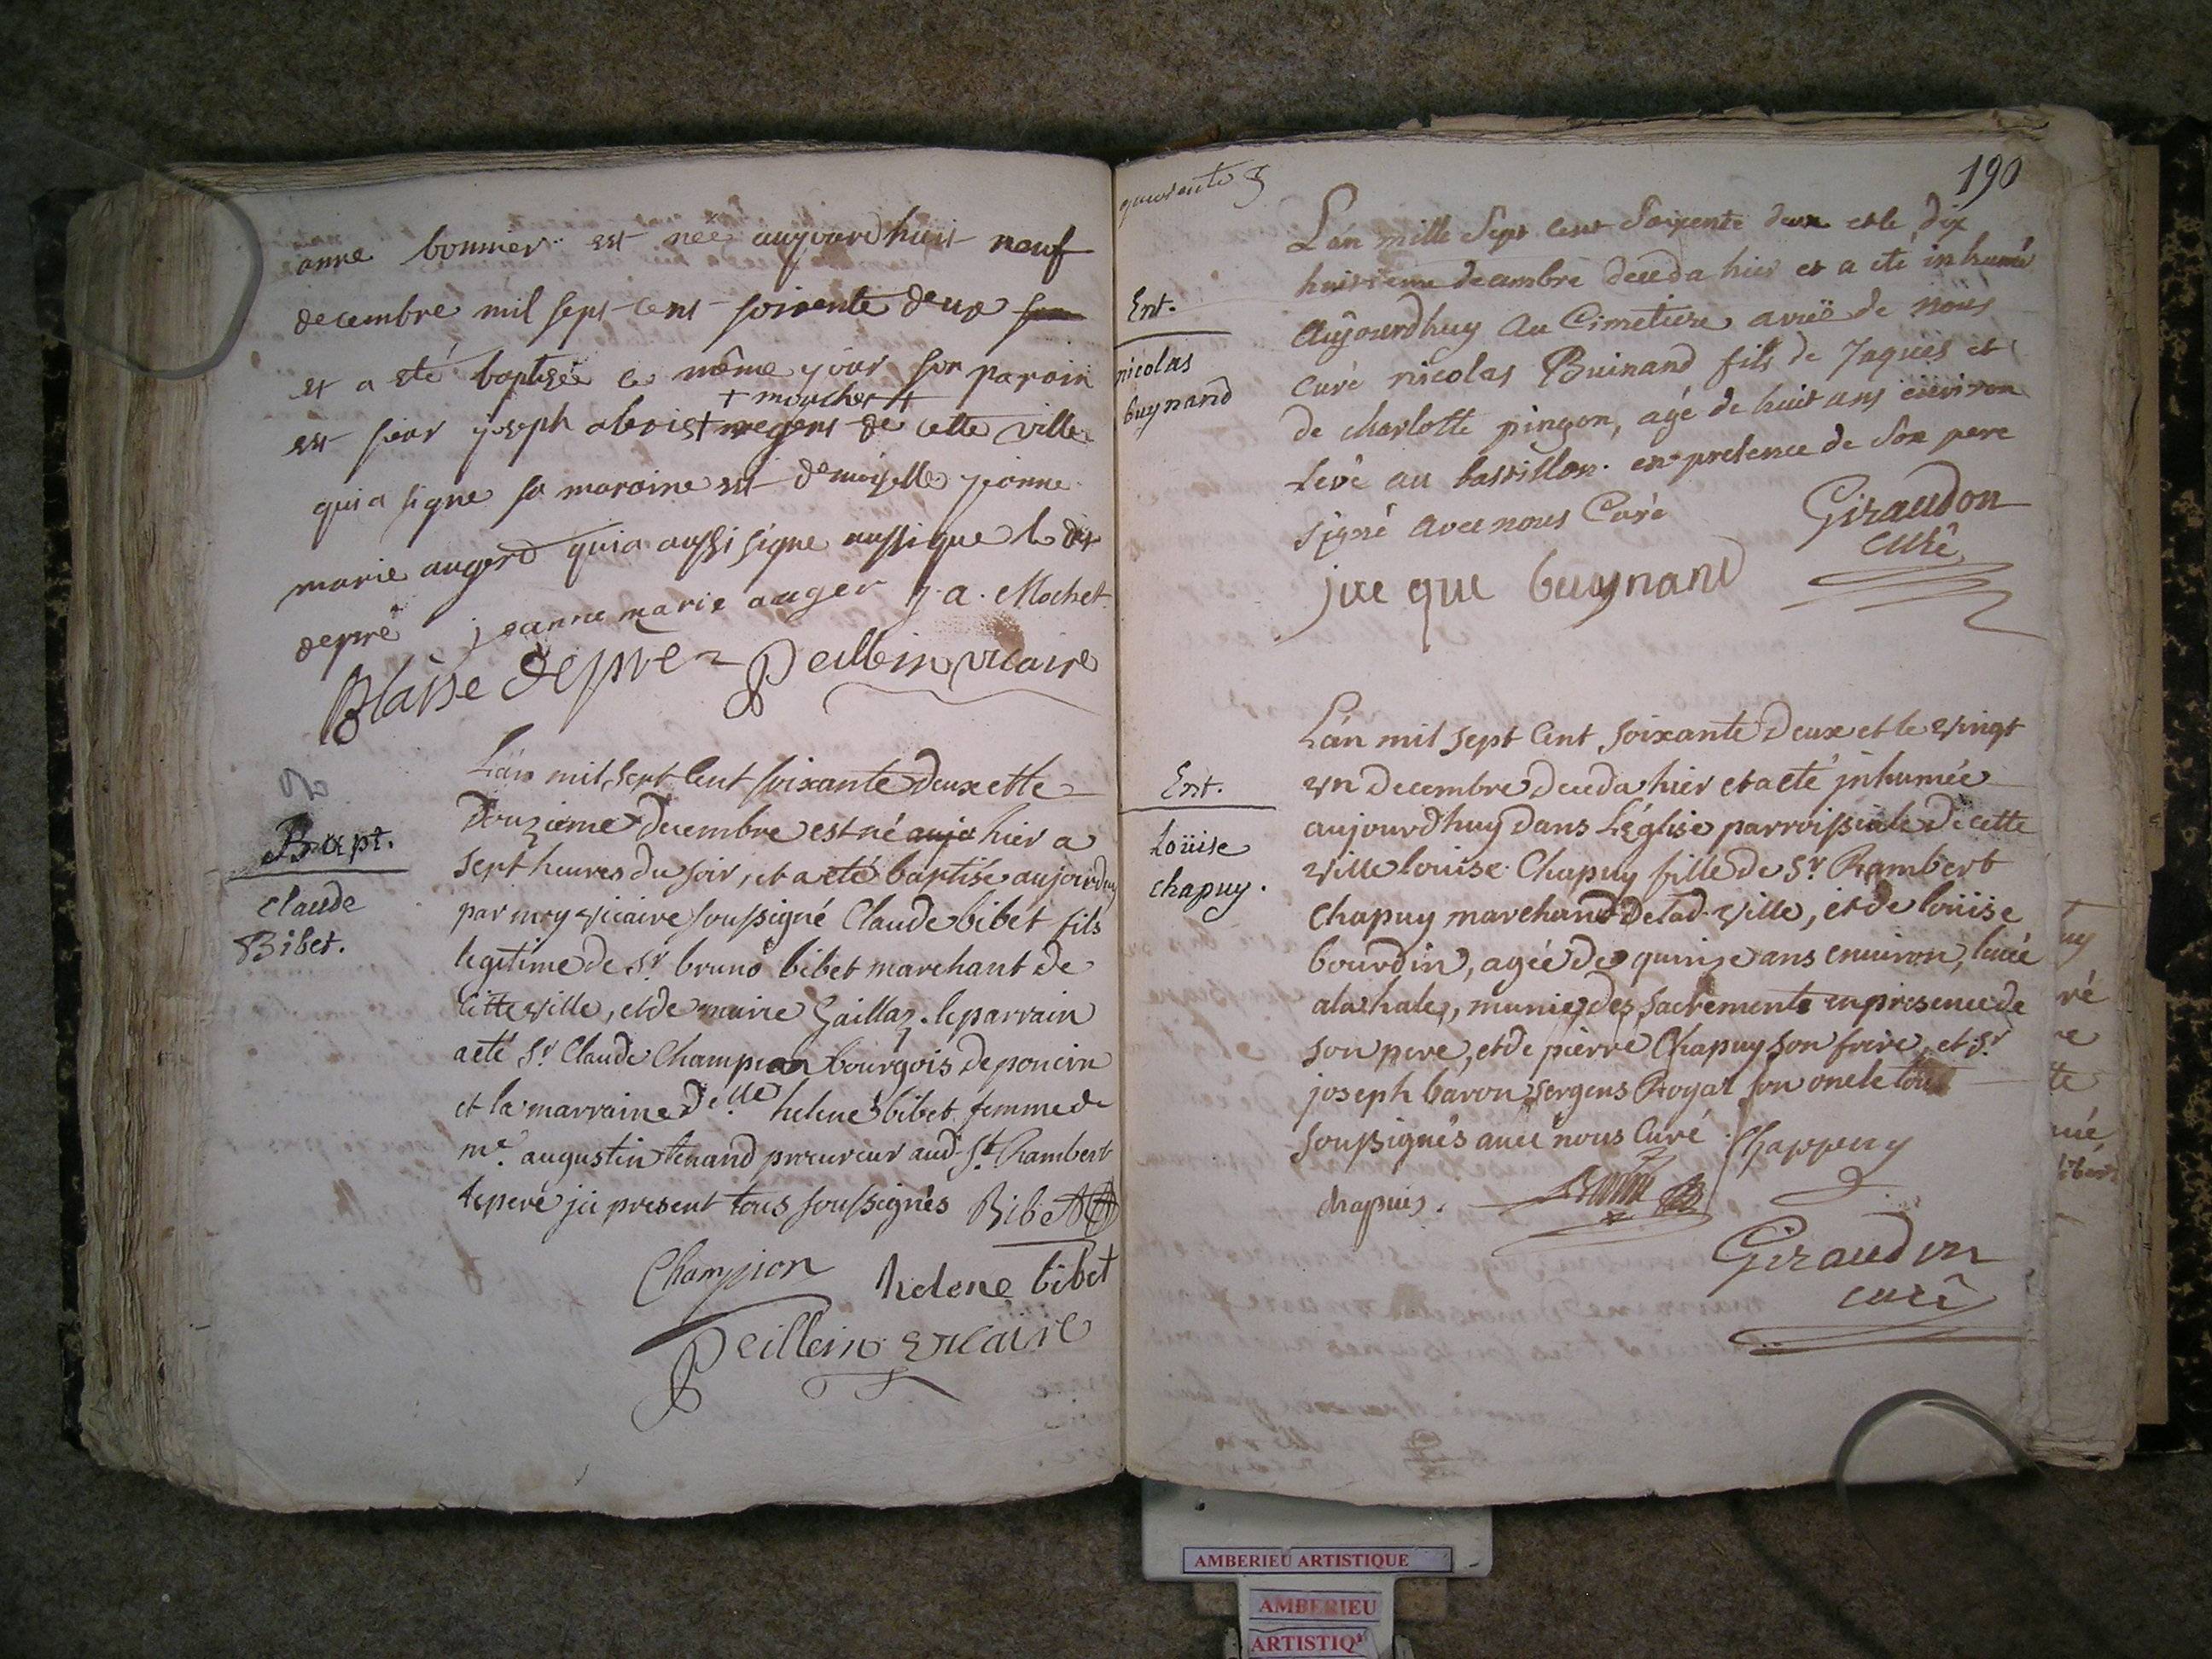 anne bonnier est née aujourdhuit neuf
decembre mil sept cens soixente deux
et a eté baptisée le même jour son parain
+ mochet +
est sieur joseph alexis + regens de cette ville
qui a signe sa maraine est demoiselle jeanne
marie augerd qui a aussi signe aussi que le dit
depré jeanne marie auger j a. Mochet
Blaise depre Peillein vicaire
Bapt.
Claude
Bibet.
L'an mil sept cent soixante deux et le
douzieme decembre est né auje hier a
sept heures du soir, et a eté baptisé aujourdhuy
par moy vicaire soussigné Claude bibet fils
legitime de Sr bruno bibet marchant de
cette ville, et de marie Gaillaz. le parrain
a eté Sr Claude Champion bourgois de poncin
et la marraine Delle helene bibet femme de
me augustin tenand procureur aud. St Rambert
le peré ici present tous soussignés Bibet
Champion helene bibet
Peillein vicaire
190
quarante
Ent.
nicolas
buynand
L'an mille sept cent soixente deux et le dix
huitieme decembre deceda hier et a eté inhumé
Aujourdhuy au Cimetiere avec de nous
curé nicolas Buinand fils de Jaques et
de charlotte pingon, agé de huit ans environ
Levé au bastillon. en presence de son pere
signé avec nous Curé Giraudon
curé
jac que buynand
Ent.
Loüise
chapuy.
L'an mil sept Cent soixante deux et le vingt
vn decembre deceda hier et a eté jnhumée
aujourdhuy dans L'église parroissiale de cette
ville louise Chapuy fille de Sr. Rambert
Chapuy marchand de lad. ville, et de loüise
bourdin, agée de quinze ans environ, levée
a la hale, munie des sacrements en presence de
son pere, et de pierre Chapuy son frere, et Sr
joseph baron sergens Royal son oncle tous
soussignés avec nous Curé Chappuy
chapuis.
Giraudon
curé
AMBERIEU ARTISTIQUE
AMBERIEU
ARTISTIQ